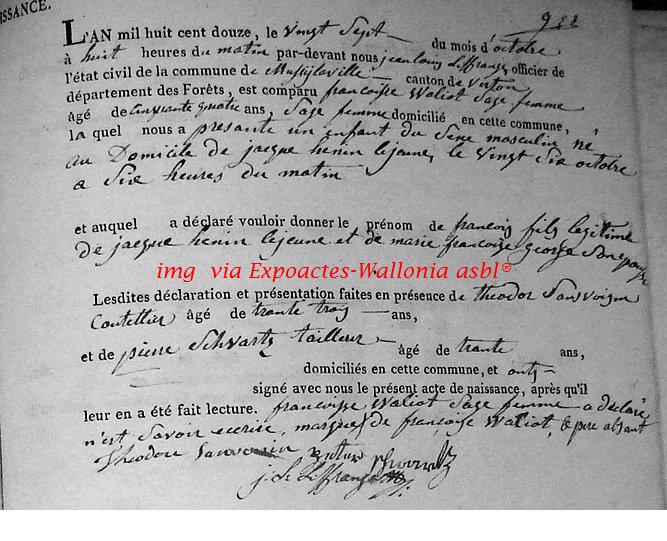 ISSANCE.
L'AN mil huit cent douze, le vingt Sept du mois d'octobre
à huit heures du matin par-devant nous jean louis deffrange, officier de
l'état civil de la commune de Mussylaville canton de virton
département des Forêts, est comparu francoisse Waliot Sage femme
âgé de Cinquante quatre ans, Sage femme domicilié en cette commune,
la quel nous a présanté un enfant du Sexe masculin né
au Domicile de jacque henin lejeune, le vingt Six octobre
a Six heures du matin
et auquel a déclaré vouloir donner le prénom de francois fils legitime
De jacque henin lejeune et de marie francoise george Son epouse
img via Expoactes-Wallonia asbl®
Lesdites déclaration et présentation faites en présence de theodor Sanvoisin
Coutellier âgé de trante trois ans,
et de pierre Schvartz tailleur âgé de trante ans,
domiciliés en cette commune, et ont
signé avec nous le présent acte de naissance, après qu'il
leur en a été fait lecture. francoisse Waliot Sage femme a déclaré
n'est Savoir ecrire, marque de francoise Waliot, le pere absant
Theodore Sanvoisin